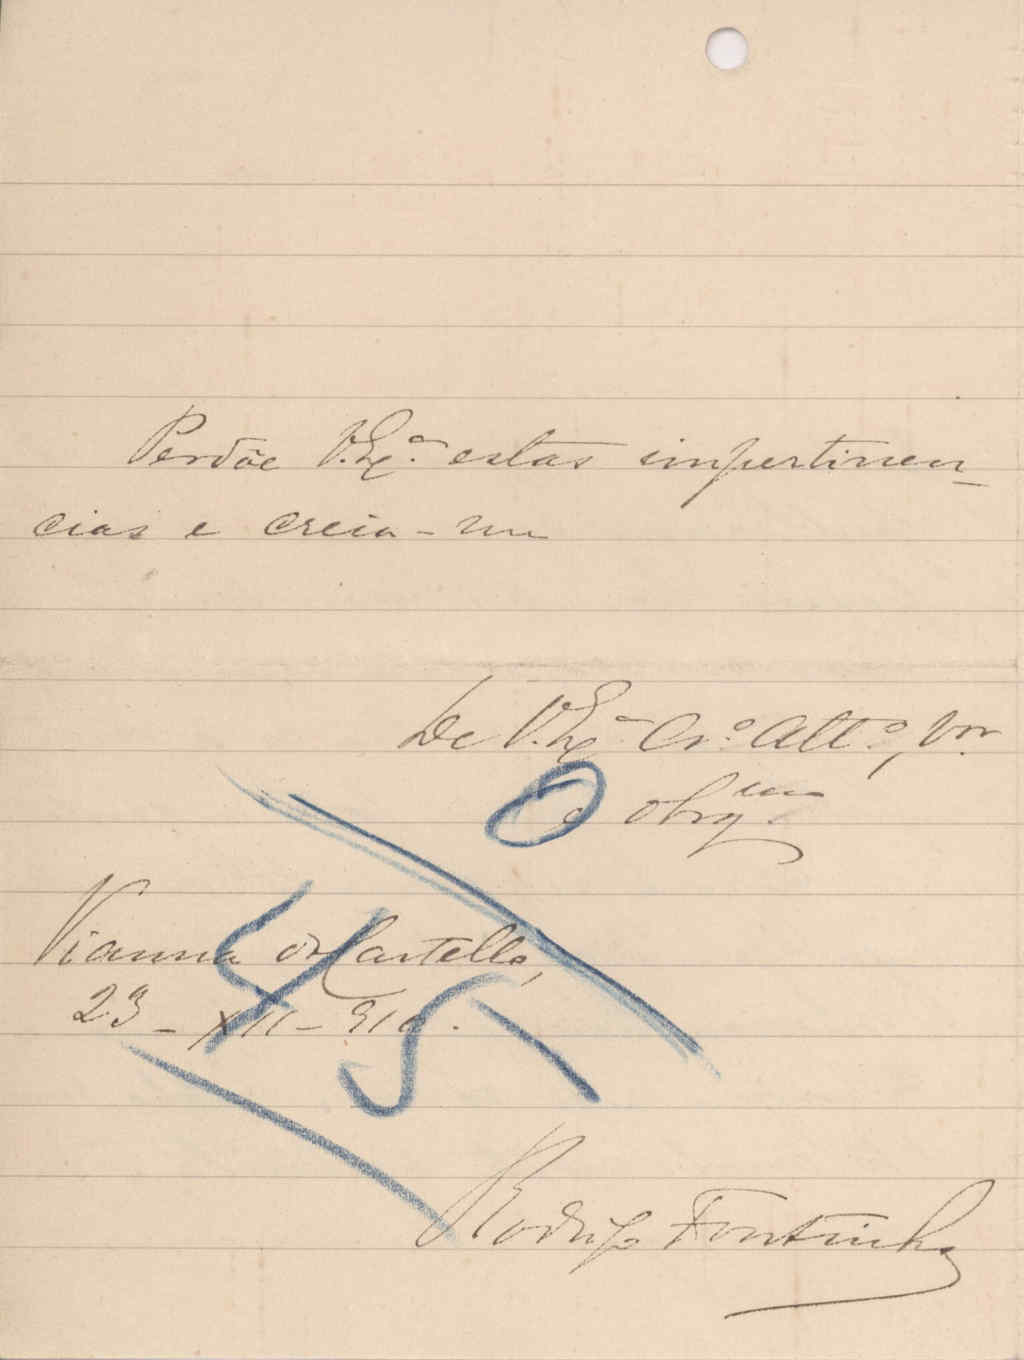 Perdôe V. Ex.ª estas impertinen-
cias e creia-me
De V. Ex.ª Cr.º Att.º, V.or
e obrg.mo
Vianna do Castello,
23-XII-910.
45
Rodrigo Fontinha